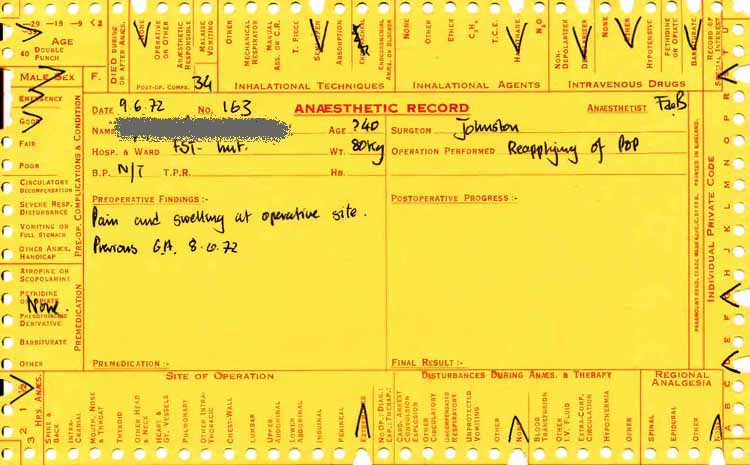 29 19 9 < 2
AGE
40 DOUBLE PUNCH
MALE SEX F.
DIED DURING OR AFTER ANÆS.
NONE
OPERATIVE OR OTHER
ANÆSTHETIC RESPONSIBLE
MALAISE VOMITING
OTHER
POST-OP. COMPS. 34
MECHANICAL RESPIRATOR
MANUAL ASS. OR C.R.
T. PIECE
ABSORPTION
ENDOTRACHEAL
ENDOBRONCHIAL ANÆS. OR BLOCKER
INHALATIONAL TECHNIQUES
NONE
OTHER
ETHER
C₃H₆
T.C.E.
HALOTHANE
N₂O
INHALATIONAL AGENTS
NON-DEPOLARIZER
DEPOLARIZER
NONE
OTHER
HYPOTENSIVE
PETHIDINE OR OPIATE
BARBITURATE
INTRAVENOUS DRUGS
RECORD OF SPECIAL INTEREST
EMERGENCY
GOOD
FAIR
POOR
CIRCULATORY DECOMPENSATION
SEVERE RESP. DISTURBANCE
VOMITING OR FULL STOMACH
OTHER ANÆS. HANDICAP
PRE-OP. COMPLICATIONS & CONDITION
ATROPINE OR SCOPOLAMINE
PETHIDINE OR OPIATE
None.
PHENOTHIAZINE DERIVATIVE
BARBITURATE
OTHER
PREMEDICATION
DATE 9.6.72 NO. 163 ANÆSTHETIC RECORD ANÆSTHETIST
NAME AGE ?40 SURGEON Johnston
HOSP. & WARD FST- hut. WT. 80kg OPERATION PERFORMED Reapplying of POP
B.P. N/T T.P.R. HB.
PREOPERATIVE FINDINGS:- POSTOPERATIVE PROGRESS:-
Pain and swelling at operative site.
Previous G.A. 8.6.72
PREMEDICATION:- FINAL RESULT:-
PARAMOUNT REGD. TRADE MARK
PRINTED IN ENGLAND.
INDIVIDUAL PRIVATE CODE
3 2 1 ½
HRS. ANÆS.
SITE OF OPERATION
SPINE & BACK
INTRA-CRANIAL
MOUTH, NOSE & THROAT
THYROID
OTHER HEAD & NECK
HEART & GT. VESSELS
PULMONARY
OTHER INTRA-THORACIC
CHEST-WALL
LUMBAR
UPPER ABDOMINAL
LOWER ABDOMINAL
INGUINAL
PERINEAL
EXTREMITIES
NO OP: DIAG.: EXP.: THERAP.:
DISTURBANCES DURING ANÆS. & THERAPY
CARD. ARREST CONVULSION EXPLOSION
OTHER CIRCULATORY
UNCOMPENSATED RESPIRATORY
UNPROTECTED VOMITING
OTHER
NONE
BLOOD TRANSFUSION
OTHER I.V. FLUID
EXTRA-CORP. CIRCULATION
HYPOTHERMIA
OTHER
REGIONAL ANALGESIA
SPINAL
EPIDURAL
OTHER